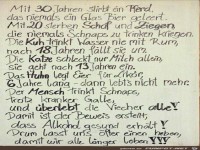 Mit 30 Jahren stirbt ein Pferd,
das niemals ein Glas Bier geleert.
Mit 20 sterben Schaf und Ziegen,
die niemals Schnaps zu trinken kriegen.
Die Kuh trinkt Wasser nie mit Rum,
nach 18 Jahren fällt sie um.
Die Katze schleckt nur Milch allein,
sie geht nach 13 Jahren ein.
Das Huhn legt Eier für
6 Jahre lang - dann lebt's nicht mehr.
Der Mensch
trinkt Kranker Galle,
und überlebt die Viecher alle!
Damit ist der Beweis erbracht,
dass Alkohol gesund erhält!
Drum lasst uns öfter einen heben,
damit wir alle länger leben!!!